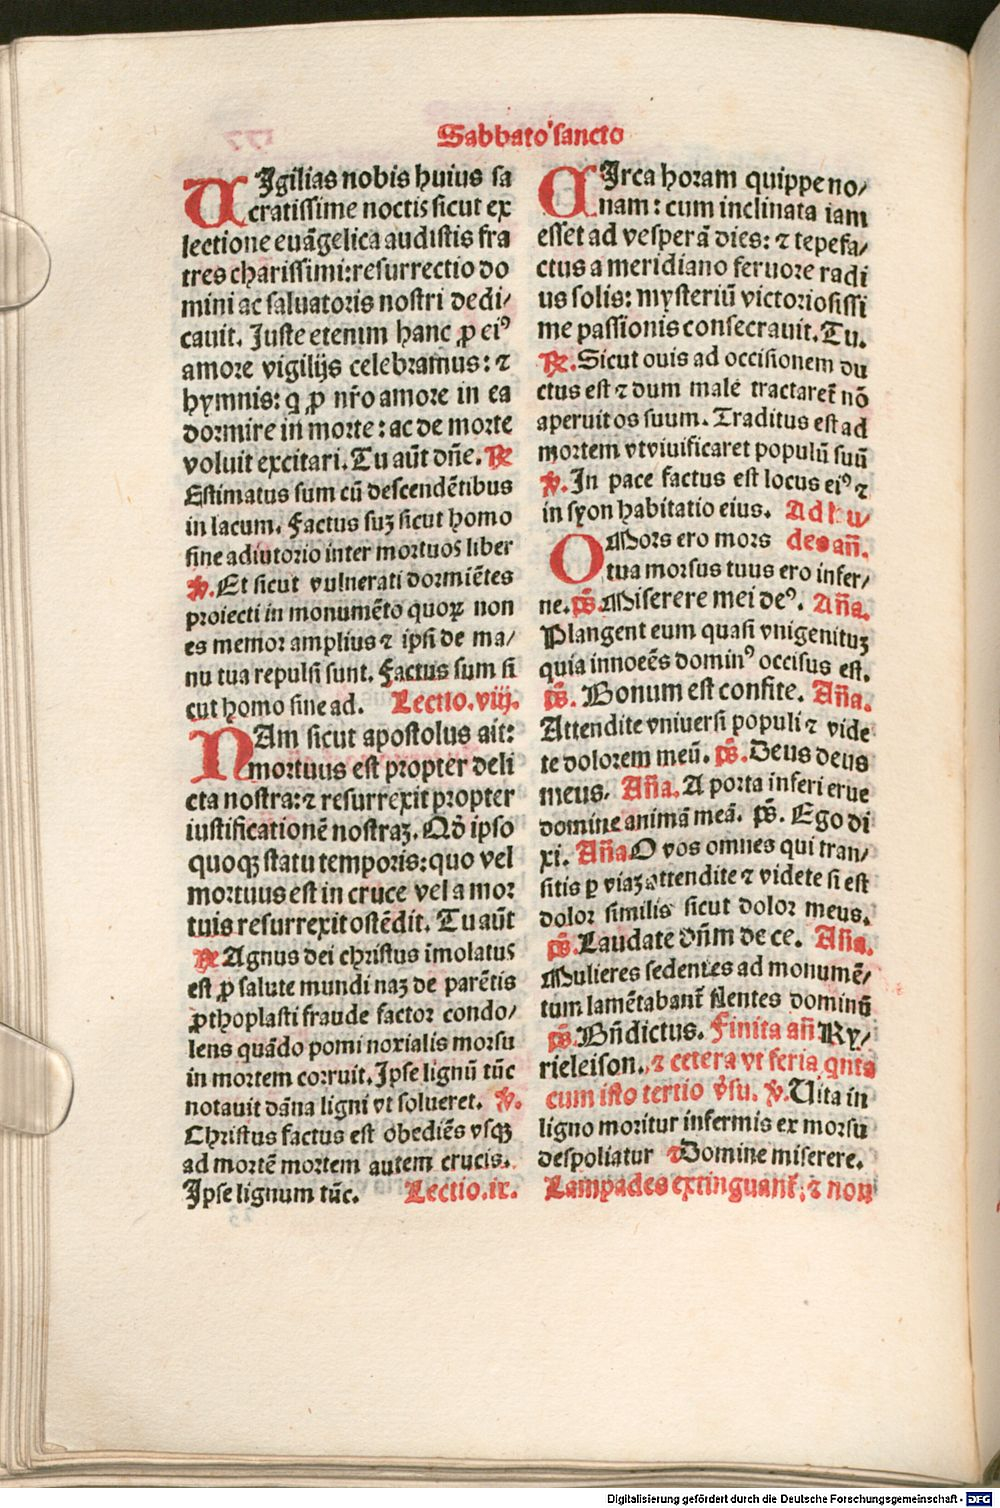 Sabbato sancto
VIgilias nobis huius sa
cratissime noctis sicut ex
lectione euāgelica audistis fra
tres charissimi: resurrectio do
mini ac saluatoris nostri dedi/
cauit. Juste etenim hanc ꝓ eiꝰ
amore vigilijs celebramus: ⁊
hymnis: q ꝓ nr̄o amore in ea
dormire in morte: ac de morte
voluit excitari. Tu aūt dn̄e. ℞
Estimatus sum cū descendētibus
in lacum. Factus suꝫ sicut homo
sine adiutorio inter mortuos liber
℣. Et sicut vulnerati dormiētes
proiecti in monumēto quoꝝ non
es memor amplius ⁊ ipsi de ma/
nu tua repulsi sunt. Factus sum si
cut homo sine ad. Lectio. viij.
NAm sicut apostolus ait:
mortuus est propter deli
cta nostra: ⁊ resurrexit propter
iustificationē nostraꝫ. Qd̄ ipso
quoqꝫ statu temporis: quo vel
mortuus est in cruce vel a mor
tuis resurrexit ostēdit. Tu aūt
℞ Agnus dei christus īmolatus
est ꝓ salute mundi naꝫ de parētis
ꝓthoplasti fraude factor condo/
lens quādo pomi noxialis morsu
in mortem corruit. Ipse lignū tūc
notauit dāna ligni vt solueret. ℣.
Christus factus est obediēs vsqꝫ
ad mortē mortem autem crucis.
Ipse lignum tūc. Lectio. ix.
CIrca horam quippe no/
nam: cum inclinata iam
esset ad vesperā dies: ⁊ tepefa/
ctus a meridiano feruore radi
us solis: mysteriū victoriosissi
me passionis consecrauit. Tu.
℞. Sicut ouis ad occisionem du
ctus est ⁊ dum male tractaret̄ nō
aperuit os suum. Traditus est ad
mortem vt viuificaret populū suū
℣. In pace factus est locus eiꝰ ⁊
in syon habitatio eius. Ad lau/
O Mors ero mors des an̄.
tua morsus tuus ero infer/
ne. p̄s. Miserere mei deꝰ. An̄a.
Plangent eum quasi vnigenituꝫ
quia innocēs dominꝰ occisus est.
p̄s. Bonum est confite. An̄a.
Attendite vniuersi populi ⁊ vide
te dolorem meū. p̄s. Deus deus
meus. An̄a. A porta inferi erue
domine animā meā. p̄s. Ego di
xi. An̄a. O vos omnes qui tran/
sitis ꝑ viaꝫ attendite ⁊ videte si est
dolor similis sicut dolor meus.
p̄s. Laudate dn̄m de ce. An̄a.
Mulieres sedentes ad monumē/
tum lamētabant̄ flentes dominū
p̄s. Bn̄dictus. Finita an̄ Ky/
rieleison. ⁊ cetera vt feria qnta
cum isto tertio v̄su. ℣. Uita in
ligno moritur infermis ex morsu
despoliatur ⁊ Domine miserere.
Lampades extinguant̄: ⁊ non
Digitalisierung gefördert durch die Deutsche Forschungsgemeinschaft - DFG